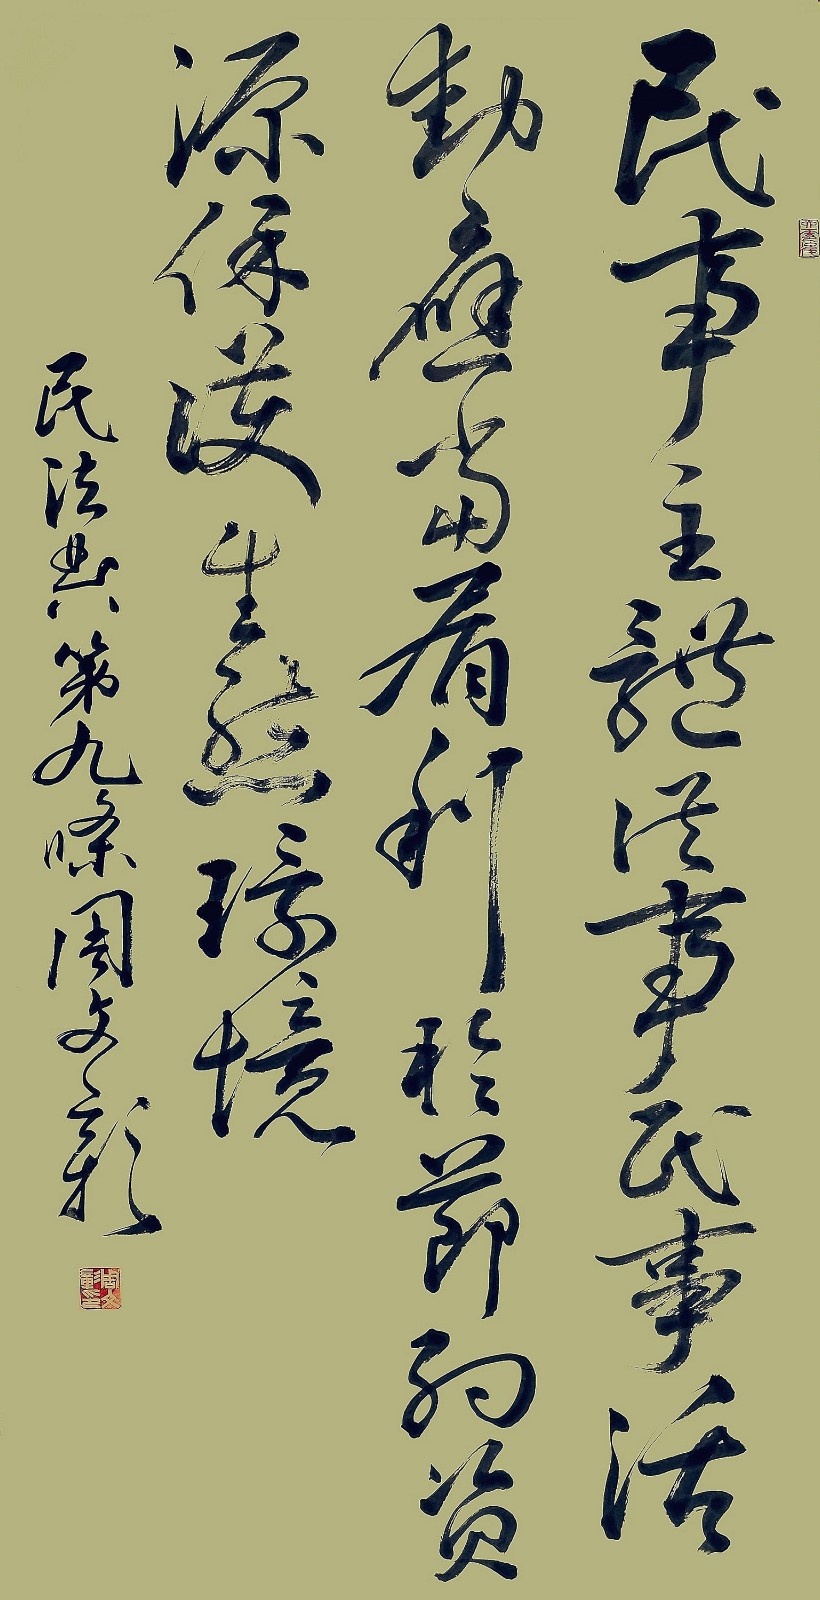 民事主體從事民事活
動應當有利於節約資
源保護生態環境
民法典第九條周文彰